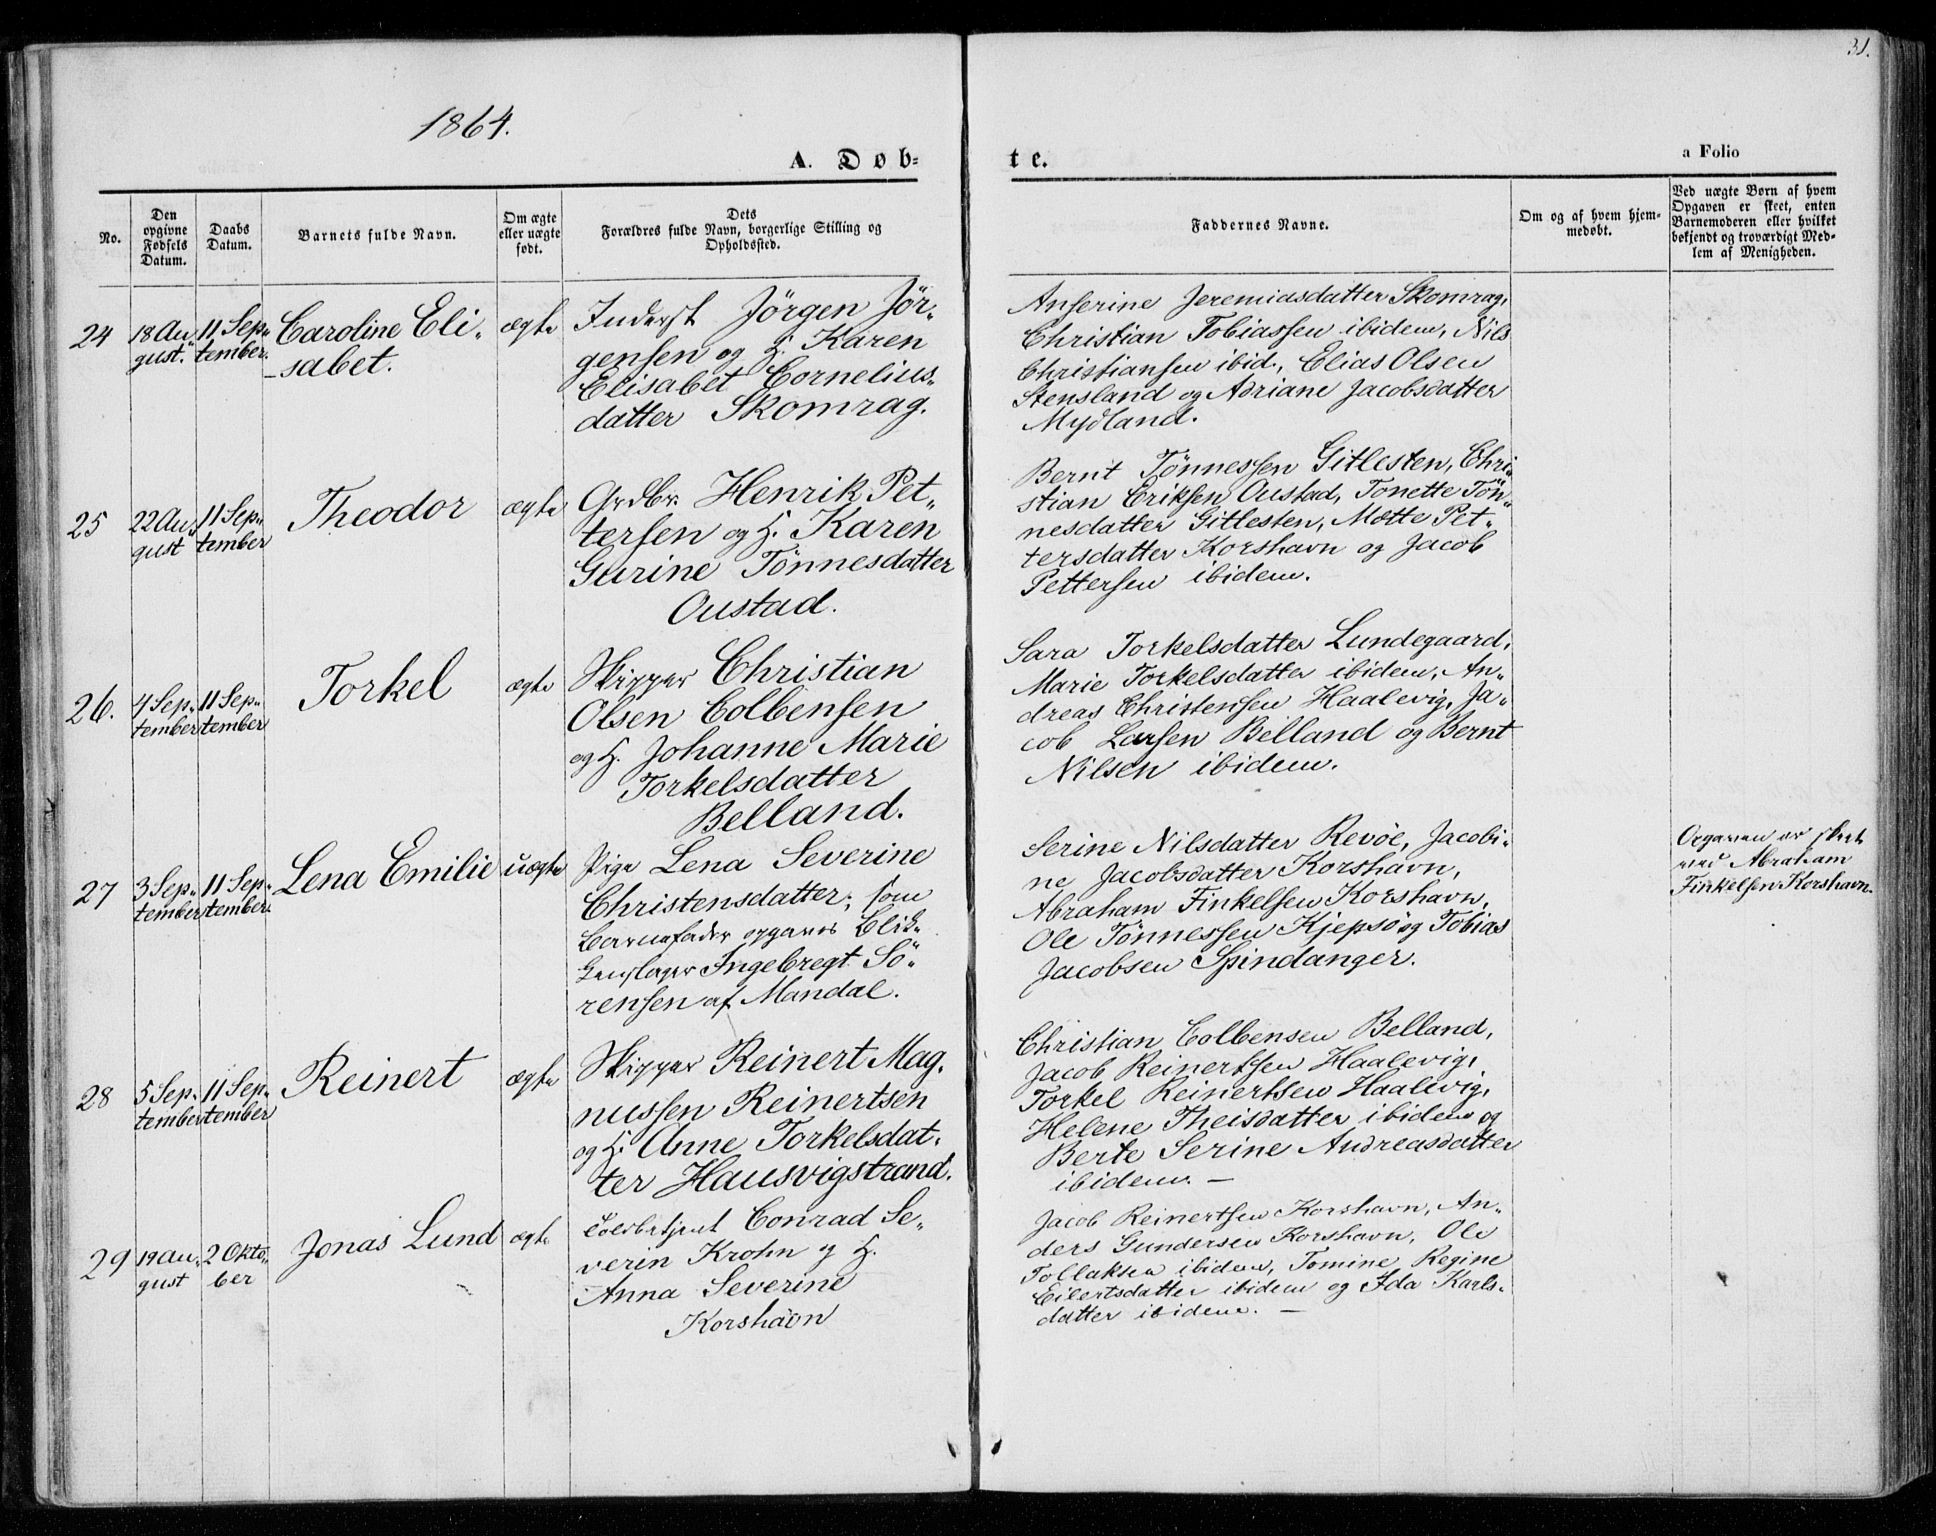 31.
1864.
A. Døb-
te.
a Folio
No.
Den opgivne Fødsels Datum.
Daabs Datum.
Barnets fulde Navn.
Om ægte eller uægte født.
Dets Forældres fulde Navn, borgerlige Stilling og Opholdssted.
Faddernes Navne.
Om og af hvem hjemmedøbt.
Ved uægte Børn af hvem
Opgaven er skeet, enten
Barnemoderen eller hvilket
bekjendt og troværdigt Med-
lem af Menigheden.
24
18 Au-
gust.
11 Sep-
tember.
Caroline Eli-
sabet.
ægte
Inderst Jörgen Jör-
gensen og H. Karen
Elisabet Cornelius-
datter Skomrag.
Anserine Jeremiasdatter Skomrag,
Christian Tobiassen ibidem, Nils
Christiansen ibid., Elias Olsen
Stensland og Adriane Jacobsdatter
Mydland.
25
22 Au-
gust
11 Sep-
tember
Theodor
ægte
Grdbr. Henrik Pet-
tersen og H. Karen
Gurine Tönnesdatter
Oustad.
Bernt Tönnessen Gitlesten, Chri-
stian Eriksen Oustad, Tonette Tön-
nesdatter Gitlesten, Mette Pet-
tersdatter Korshavn og Jacob
Pettersen ibidem.
26.
4 Sep-
tember
11 Sep-
tember
Torkel
ægte
Skipper Christian
Olsen Colbensen
og H. Johanne Marie
Torkelsdatter
Belland.
Sara Torkelsdatter Lundegaard,
Marie Torkelsdatter ibidem, An-
dreas Christensen Haalevig, Ja-
cob Larsen Belland og Bernt
Nilsen ibidem.
27
3 Sep-
tember
11 Sep-
tember.
Lena Emilie
uægte
Pige Lena Severine
Christensdatter; som
Barnefader opgaves Blik-
kenslager Ingebregt Sö-
rensen af Mandal.
Serine Nilsdatter Revöe, Jacobi-
ne Jacobsdatter Korshavn,
Abraham Finkelsen Korshavn,
Ole Tönnessen Kjepsö og Tobias
Jacobsen Spindanger.
Opgaven er skeet
ved Abraham
Finkelsen Korshavn.
28
5 Sep-
tember
11 Sep-
tember
Reinert
ægte
Skipper Reinert Mag-
nussen Reinertsen
og H. Anne Torkelsdat-
ter Hausvigstrand.
Christian Colbensen Belland,
Jacob Reinertsen Haalevig,
Torkel Reinertsen Haalevig,
Helene Theisdatter ibidem og
Berte Serine Andreasdatter
ibidem. —
29
19 Au-
gust
2 Okto-
ber
Jonas Lund
ægte
Toldbetjent Conrad Se-
verin Krohn og H.
Anna Severine
Korshavn
Jacob Reinertsen Korshavn, An-
ders Gundersen Korshavn, Ole
Tollaksen ibidem, Tomine Regine
Eilertsdatter ibidem og Ida Karls-
datter ibidem. —